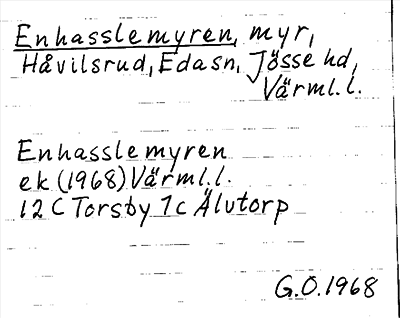 Enhasslemyren, myr,
Håvilsrud, Eda sn, Jösse hd,
Värml. l.
Enhasslemyren
ek (1968) Värml. l.
12 C Torsby 1c Älvtorp
G.O. 1968